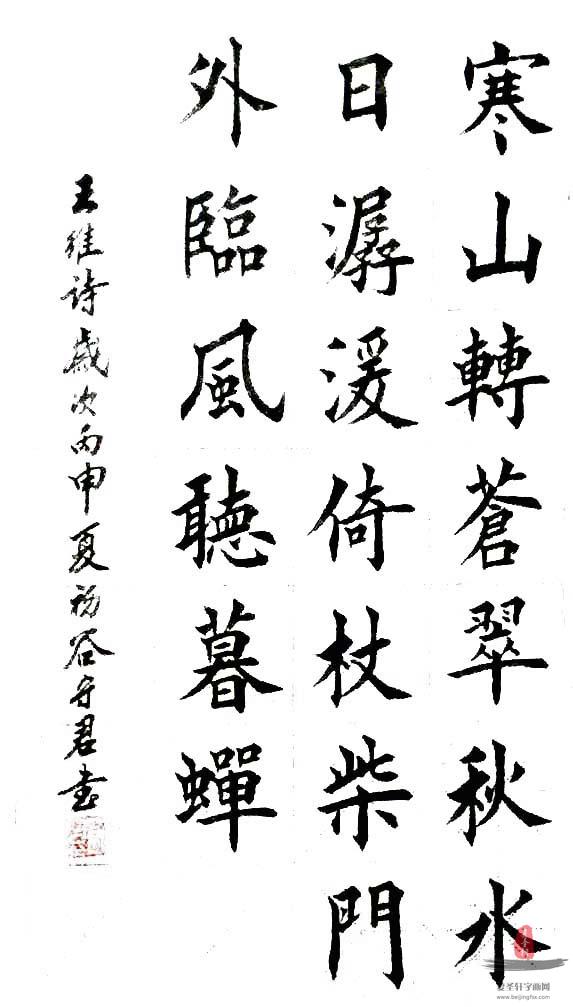 寒山轉蒼翠秋水
日潺湲倚杖柴門
外臨風聽暮蟬
王維詩歲次丙申夏初谷守君書